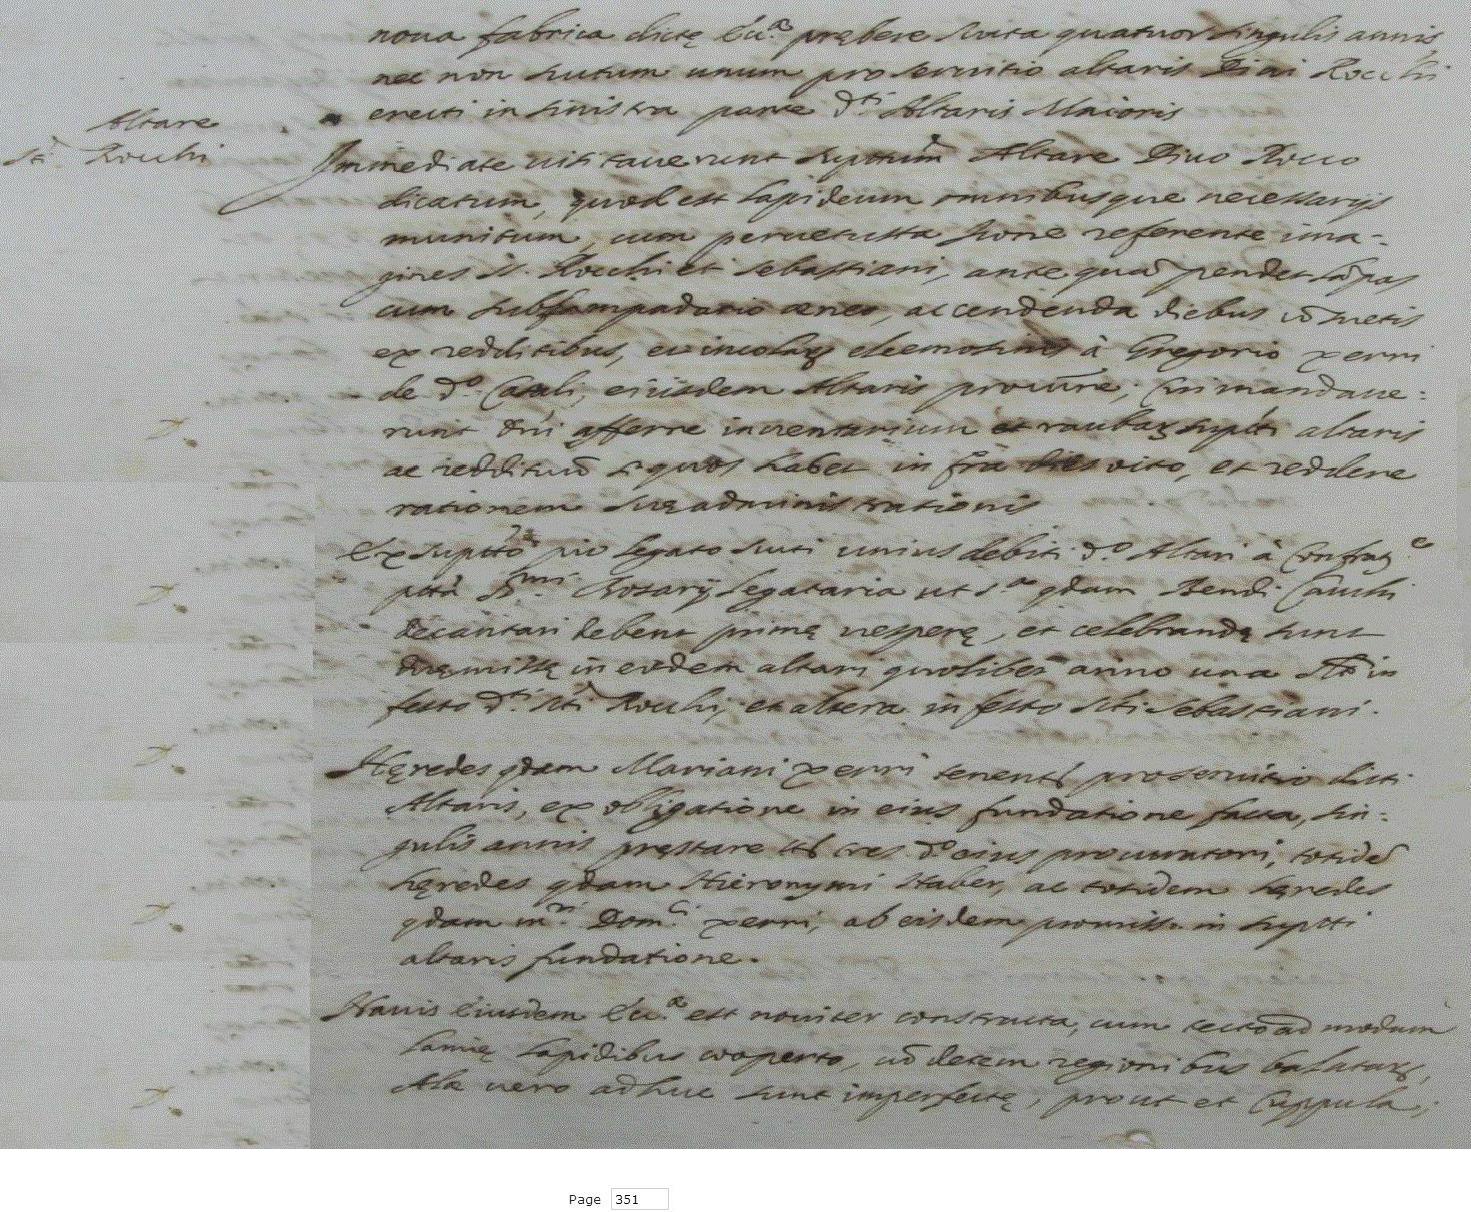 noua fabrica dictę Ecc.ᵃ prębere scuta quatuor singulis annis
nec non scutum unum pro seruitio altaris Diui Rocchi
erecti in sinistra parte d.ᵗⁱ Altaris Maioris
Altare
Sᵗⁱ Rocchi
Immediate uisitauerunt supttum Altare Diuo Rocco
dicatum, quod est lapideum omnibusque necessarijs
munitum, cum peruetusta Icone referente ima-
gines S. Rocchi et Sebastiani, ante quā pendet lāpas
cum sublampadario aereo, accendenda diebus cōsuetis
ex redditibus, eleemosinis à Gregorio Xerri
de d.ᵒ Casali, eiusdem Altaris procure, cui mandaue:
runt dni afferre inuentarium et raubaꝝ suptti altaris
ac reddituū siquos habet in fra dies octo, et reddere
rationem suę administrationis
Ex suptto pio legato scuti unius debiti d.ᵒ Altari à
Rosarij legataria ut sᵃ qdam Bendi Cauchi
decantari debent primę uesperę, et celebrandę sunt
duę missę in eodem altari quolibet anno una in
festo d.ᵗⁱ Sᵗⁱ Rocchi, et altera in festo Sti Sebastiani.
Hęredes qdam Mariani Xerri tenent pro seruitio dicti
Altaris, ex obligatione in eius fundatione facta, sin:
gulis annis pręstare tres d.ᵒ eius procuratori, totidē
hęredes qdam Hieronymi Haber, ac totidem hęredes
qdam mʳⁱ Dom.ᶜⁱ Xerri, ab eisdem promissi in suptti
altaris fundatione.
Nauis eiusdem Ecc.ᵃ est nouiter constructa, cum tecto ad modum
lamię lapidibus cooperto, uō detem regionibus balataꝝ,
Alæ uero adhuc sunt imperfectę, prout et Cuppula,;
Page 351